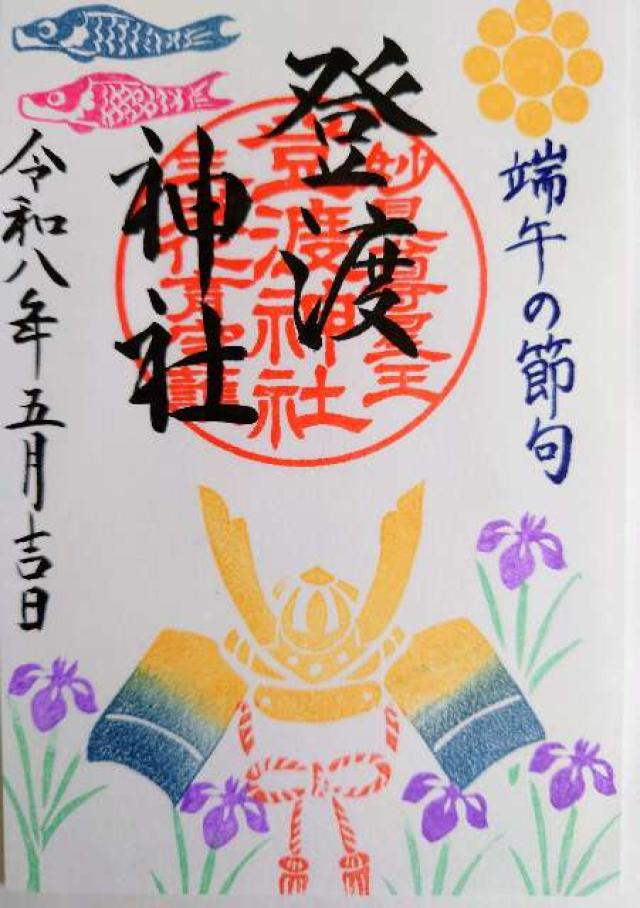 端午の節句
登渡
神社
令和八年五月吉日
妙見尊星王
登渡神社